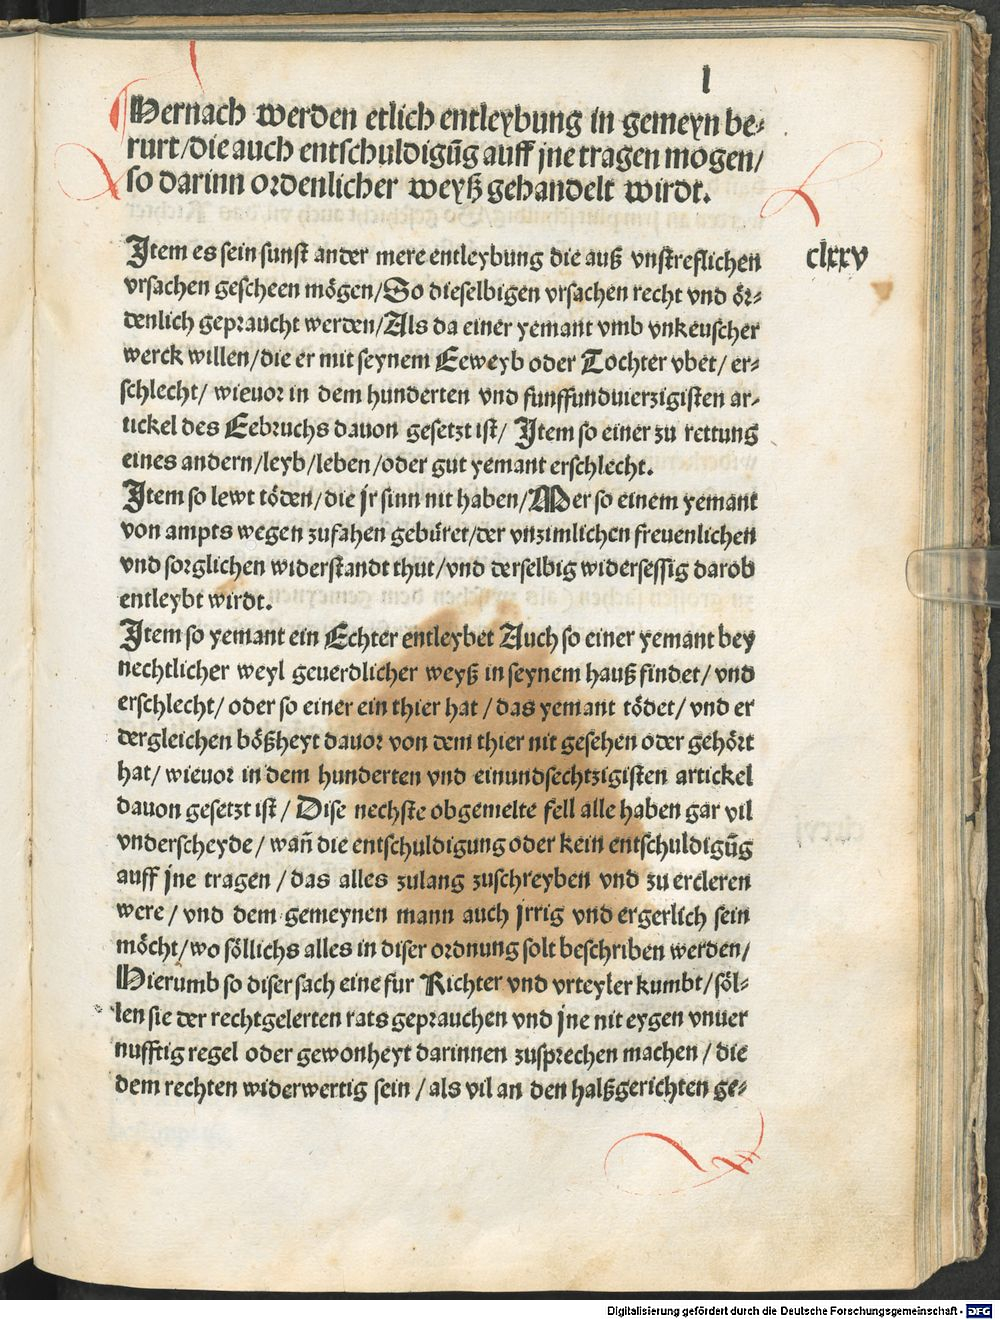 l
Hernach werden etlich entleybung in gemeyn be⸗
rurt/die auch entschuldigūg auff jne tragen mögen/
so darinn ordenlicher weyß gehandelt wirdt.
Item es sein sunst ander mere entleybung die auß vnstreflichen
clxxv
vrsachen gescheen mögen/So dieselbigen vrsachen recht vnd ör⸗
denlich gepraucht werden/Als da einer yemant vmb vnkeuscher
werck willen/die er mit seynem Eeweyb oder Tochter vbet/er⸗
schlecht/ wieuor in dem hunderten vnd funffundvierzigisten ar⸗
tickel des Eebruchs dauon gesetzt ist/ Item so einer zu rettung
eines andern/leyb/leben/oder gut yemant erschlecht.
Item so lewt töden/die jr sinn nit haben/Mer so einem yemant
von ampts wegen zufahen gebüret/der vnzimlichen freuenlichen
vnd sorglichen widerstandt thut/vnd derselbig widersessig darob
entleybt wirdt.
Item so yemant ein Echter entleybet Auch so einer yemant bey
nechtlicher weyl geuerdlicher weyß in seynem hauß findet/vnd
erschlecht/oder so einer ein thier hat/das yemant tödet/vnd er
dergleichen bößheyt dauor von dem thier nit gesehen oder gehört
hat/wieuor in dem hunderten vnd einundsechtzigisten artickel
dauon gesetzt ist/ Dise nechste obgemelte fell alle haben gar vil
vnderscheyde/wañ die entschuldigung oder kein entschuldigūg
auff jne tragen/das alles zulang zuschreyben vnd zu ercleren
were/vnd dem gemeynen mann auch jrrig vnd ergerlich sein
möcht/wo söllichs alles in diser ordnung solt beschriben werden/
Hierumb so diser sach eine fur Richter vnd vrteyler kumbt/söl⸗
len sie der rechtgelerten rats geprauchen vnd jne nit eygen vnuer
nufftig regel oder gewonheyt darinnen zusprechen machen/die
dem rechten widerwertig sein/als vil an den halßgerichten ge⸗
Digitalisierung gefördert durch die Deutsche Forschungsgemeinschaft - DFG